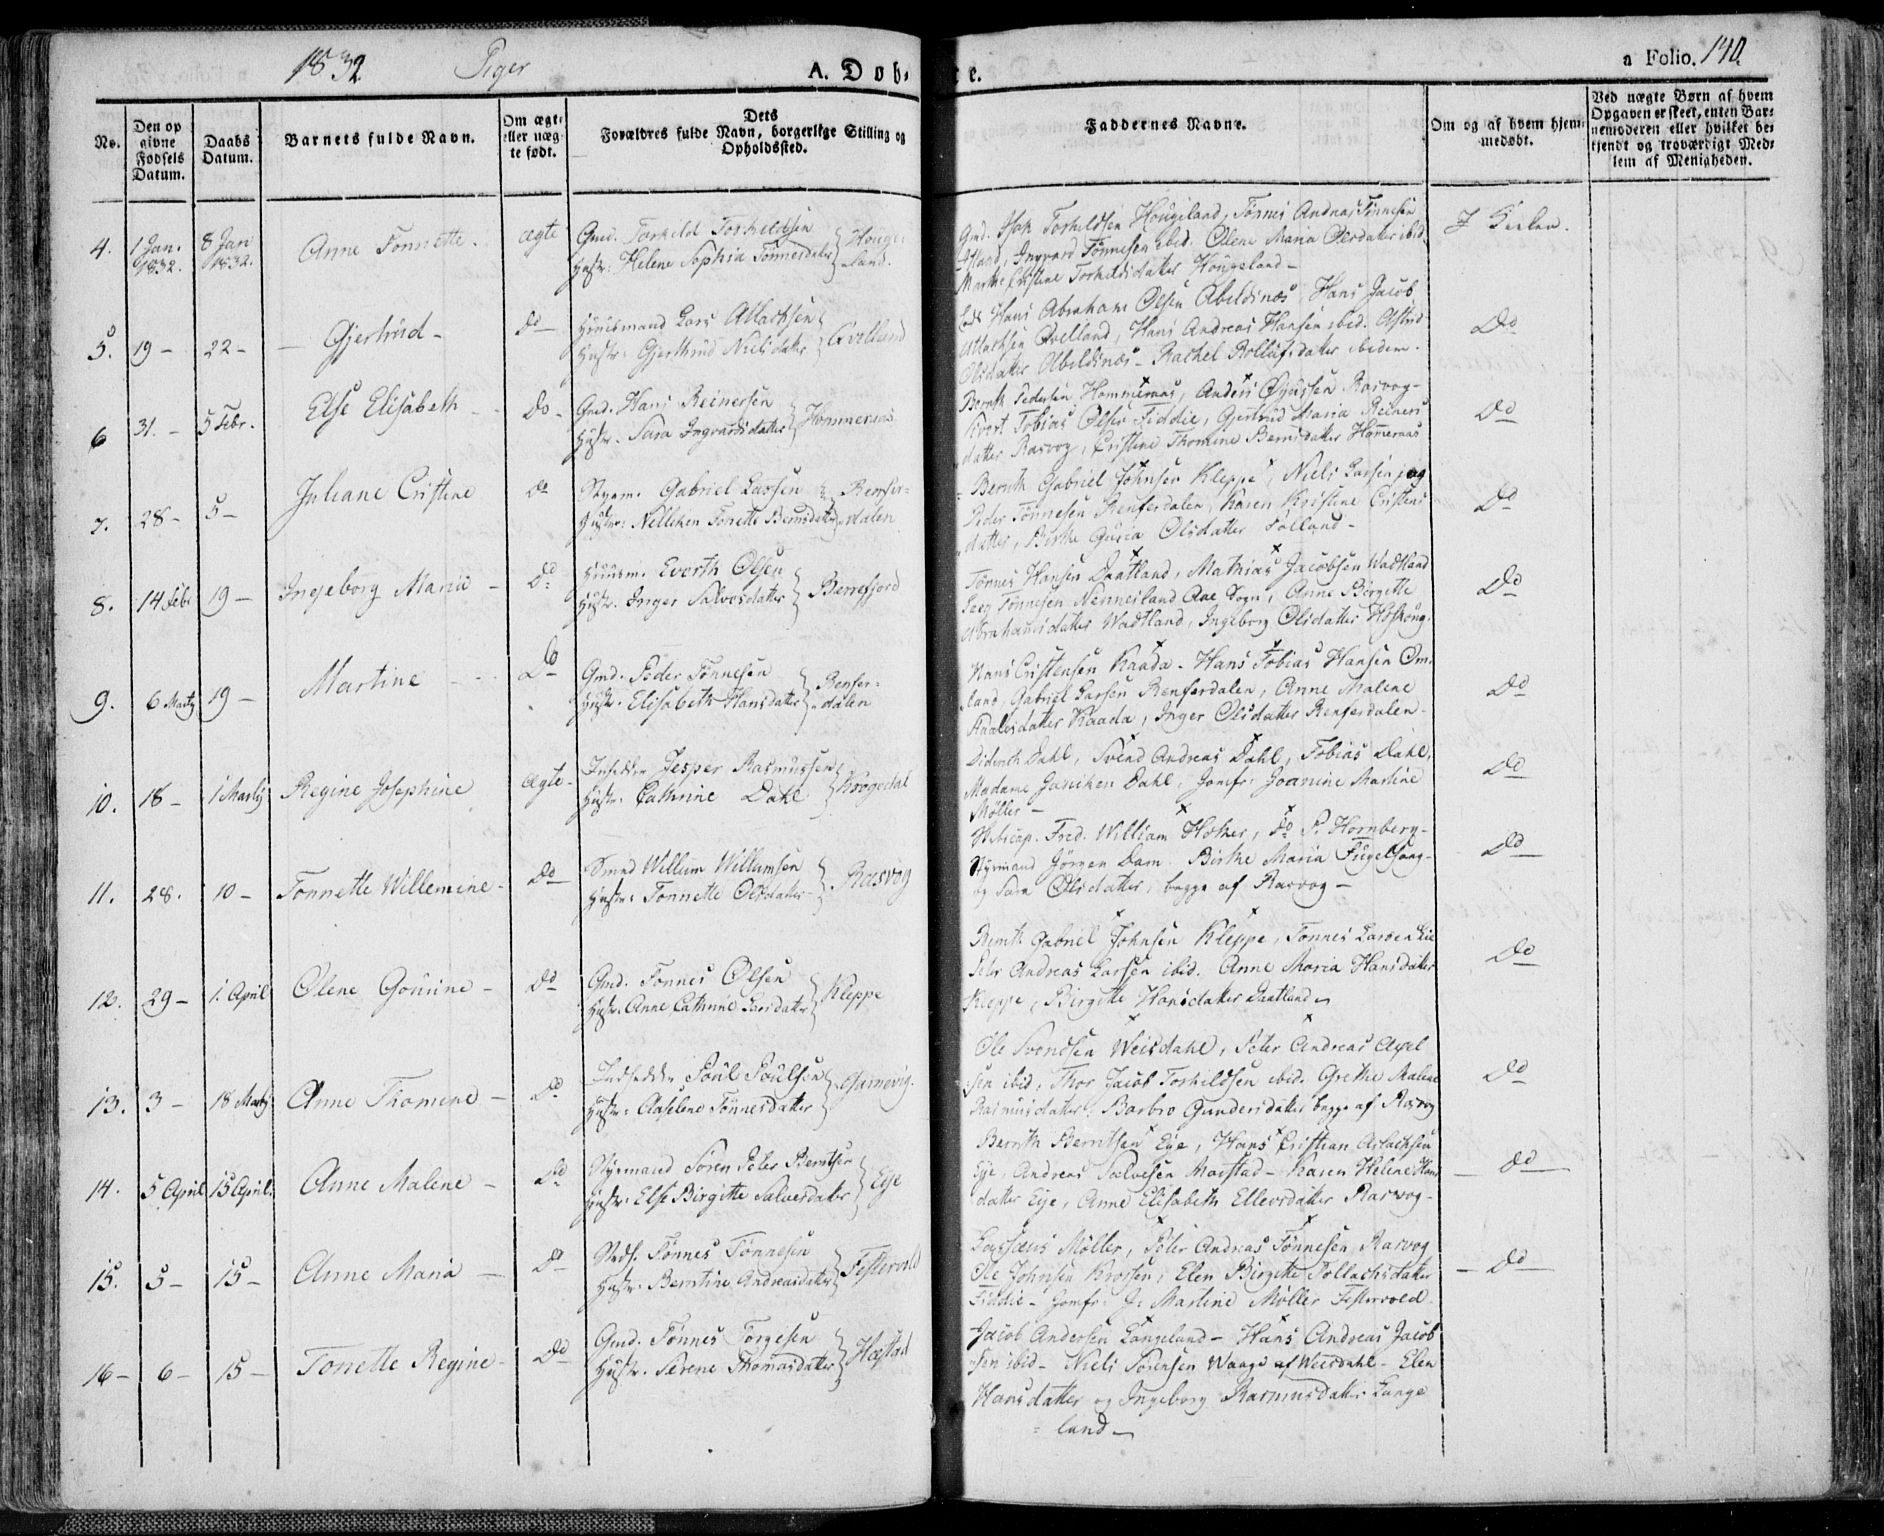 1832 Piger A. Døb- te. a Folio. 140.
No.
Den opgivne Fødsels Datum.
Daabs Datum.
Barnets fulde Navn.
Om ægte eller uægte født.
Dets Forældres fulde Navn, borgerlige Stilling og Opholdssted.
Faddernes Navne.
Om og af hvem hjemmedøbt.
Ved uægte Børn af hvem Opgaven er skeet, enten Barnemoderen eller hvilket bekjendt og troværdigt Medlem af Menigheden.
4. 1 Jan. 1832. 8 Jan 1832. Anne Tonnette. ægte
Gmd. Torkeld Torkeldsen
Hustr: Helene Sophia Tønnesdatter } Hougeland.
Gmd. Isak Torkildsen Hougeland, Tønnes Andreas Tønnesen
Ingvard Tønnesen ibid. Olene Maria Olsdatter ibid.
Marthe Cristine Torkildsdatter Hougeland -
I Kirken.
5. 19 - 22 - Gjertrud - Do
Huusmand Lars Atlachsen
Hustr: Gjerthrud Nielsdatter } Qvelland
Hans Abraham Olsen Abeldnæs, Hans Jacob
Atlachsen Qvelland, Hans Andreas Hansen ibid. Astrid
Olsdatter Abeldnæs - Rachel Rolluf.datter ibidem.
Do
6 31. - 5 Febr. Else Elisabeth - Do -
Gmd. Hans Reinersen
Hustr. Sara Ingvardsdatter } Hommeraas
Bernth Pedersen Hommeraas, Anders Øyusen Rasvog -
Tobias Olsen Fiddie, Gjertrud Maria Reiners
datter Rasvog, Cristine Thomine Berntsdatter Hommeraas
Do
7. 28 - 5 - Juliane Cristine Do
Gabriel Larsen
Hustr: Nelleken Tonette Berntsdatter } Renferdalen
Bernth Gabriel Johnsen Kleppe, Niels Larsen, og
Peder Tønnesen Renferdalen, Karen Kristine Cristens
datter, Birthe Guria Olsdatter Folland -
Do
8. 14 Febr 19 - Ingeborg Maria - Do
Huusm. Everth Olsen
Hustr. Inger Salvesdatter } Berrefjord
Tønnes Hansen Daatland, Mathias Jacobsen Wadtland
Tønnesen Nennesland Aae Sogn, Anne Børgitte
Abrahamsdatter Wadtland, Ingeborg Olsdatter
Do
9. 6 Martz 19 - Martine - Do
Gmd. Peder Tønnesen
Hustr. Elisabeth Hansdatter } Renferdalen
Hans Cristensen Kaada - Hans Tobias Hansen Om
land, Gabriel Larsen Renferdalen, Anne Malene
Kaada, Inger Olsdatter Renferdalen -
Do
10. 18 - 1 Martij Regine Josephine ægte -
Jesper Rasmussen
Hustr: Cathrine Dahl } Krogedal
Diderich Dahl, Svend Andreas Dahl, Tobias Dahl,
Madame Janiken Dahl, Jomfr: Joanine Martine
Møller -
Do
11. 28. 10 - Tonnette Willemine - Do
Willum Willumsen
Hustr: Tonnette Olsdatter } Rasvog
Fred. William Høther, Do P. Hornberg -
Styrmand Jørgen Dam. Birthe Maria Fugelsang -
og Sara Olsdatter, begge af Rasvog -
Do
12. 29 - 1. April Olene Gomine - Do
Gmd. Tonnes Olsen
Hustr. Anne Cathrine Larsdatter } Kleppe
Bernth Gabriel Johnsen Kleppe, Tonnes Larsen Lie
Peter Andreas Larsen ibid. Anne Maria Hansdatter
Kleppe, Birgitte Hansdatter Daatland -
Do
13. 3 - 18 Martij Anne Thomine - Do
Poul Poulsen
Hustr: Aaselene Tønnesdatter } Gamevig.
Ole Svendsen Weisdahl, Peter Andreas Axel
sen ibid, Thor Jacob Torkildsen ibid. Grethe Malene
Rasmusdatter, Barbro Gundersdatter begge af Rasvog
Do
14. 5 April 15 April. Anne Malene - Do
Styrmand Søren Peter Berntsen
Hustr: Else Birgitte Salvesdatter } Eye
Bernth Berntsen Eye, Hans Cristian Atlachsen
Eye, Andreas Salvesen Marstad - Karen Helene Hans
datter Eye, Anne Elisabeth Ellevsdatter Rasvog -
- Do
15. 5 - 15 - Anne Maria - Do
Tønnes Tønnesen
Hustr: Berntine Andreasdatter } Festervold
Møller, Peter Andreas Tønnesen Rasvog
Ole Johnsen Krossen, Elen Birgitte Tollachsdatter
Fiddie - Jomfr: J: Martine Møller Festervold
- Do
16 - 6 - 15 - Tonette Regine - Do
Gmd. Tønnes Torgesen
Hustr. Serene Thomasdatter } Hæstad
Jacob Andersen Langeland - Hans Andreas Jacob
sen ibid - Niels Sørensen Waage af Weisdahl - Elen
Hansdatter og Ingeborg Rasmusdatter Lange
land -
Do